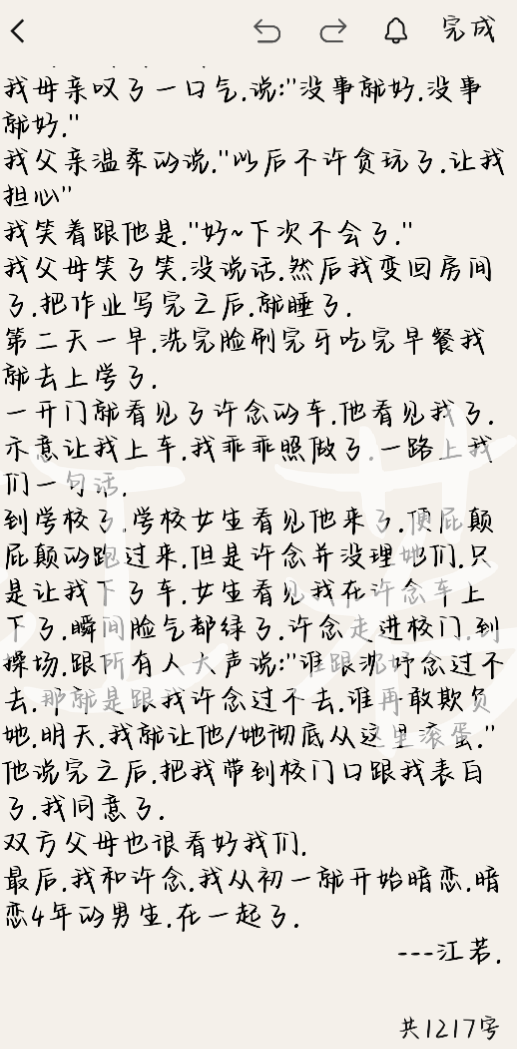 完成
我母亲叹了一口气.说:"没事就好.没事
就好."
我父亲温柔的说."以后不许贪玩了.让我
担心"
我笑着跟他是."好~下次不会了."
我父母笑了笑.没说话.然后我变回房间
了.把作业写完之后.就睡了.
第二天一早.洗完脸刷完牙吃完早餐我
就去上学了.
一开门就看见了许念的车.他看见我了.
示意让我上车.我乖乖照做了.一路上我
们一句话.
到学校了.学校女生看见他来了.便屁颠
屁颠的跑过来.但是许念并没理她们.只
是让我下了车.女生看见我在许念车上
下了.瞬间脸气都绿了.许念走进校门.到
操场.跟所有人大声说:"谁跟沈妤念过不
去.那就是跟我许念过不去.谁再敢欺负
她.明天.我就让他/她彻底从这里滚蛋."
他说完之后.把我带到校门口跟我表白
了.我同意了.
双方父母也很看好我们.
最后.我和许念.我从初一就开始暗恋.暗
恋4年的男生.在一起了.
---江若.
共1217字